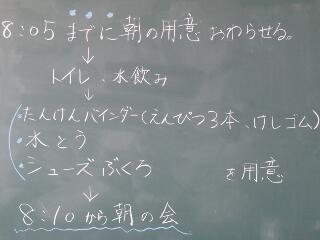 8:05 までに 朝の用意 おわらせる。
↓
トイレ、水飲み
↓
・たんけんバインダー(えんぴつ3本、けしゴム)
・水とう
・シューズぶくろ を用意
↓
8:10から朝の会